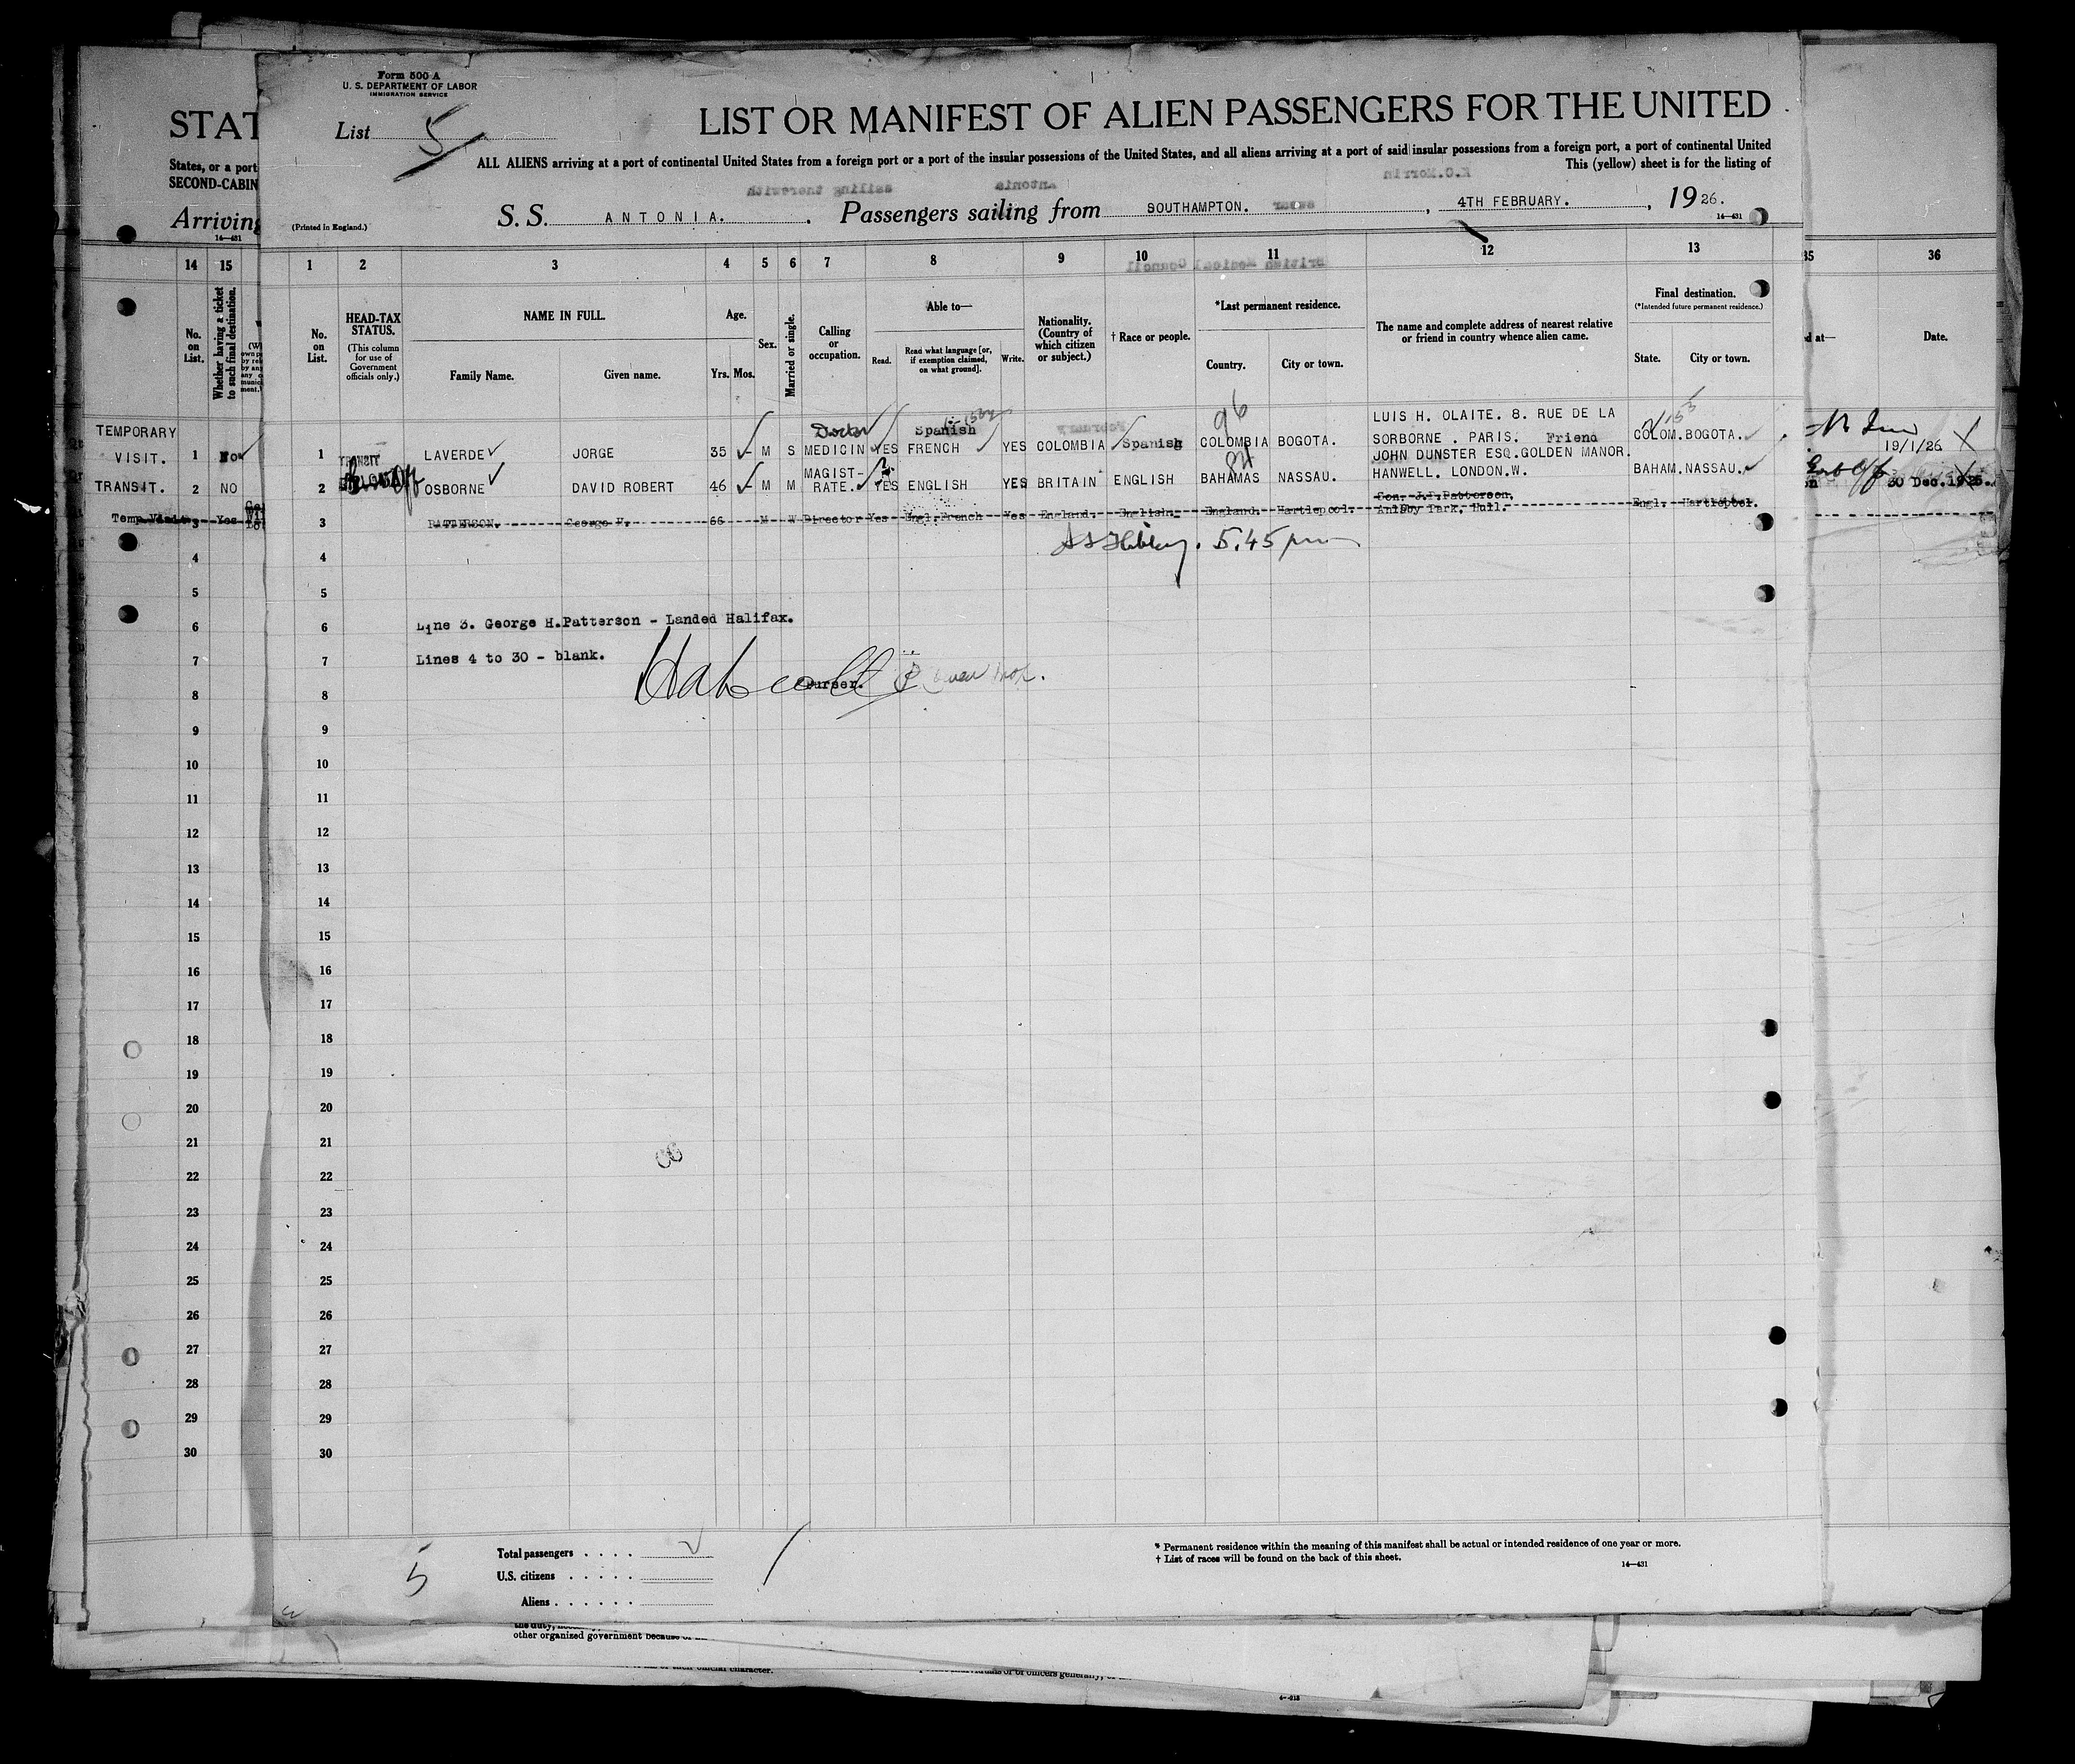 Form 500 A
U. S. DEPARTMENT OF LABOR
IMMIGRATION SERVICE
STAT
LIST OR MANIFEST OF ALIEN PASSENGERS FOR THE UNITED
List 5
States, or a port
ALL ALIENS arriving at a port of continental United States from a foreign port or a port of the insular possessions of the United States, and all aliens arriving at a port of said insular possessions from a foreign port, a port of continental United
SECOND-CABIN
This (yellow) sheet is for the listing of
Arriving
14—431
(Printed in England.)
S. S. ANTONIA. , Passengers sailing from SOUTHAMPTON. , 4TH FEBRUARY. , 19 26.
14—431
14 15 1 2 3 4 5 6 7 8 9 10 11 12 13 35 36
No. on List.
Whether having a ticket to such final destination.
No. on List.
HEAD-TAX STATUS.
(This column for use of Government officials only.)
NAME IN FULL.
Family Name. Given name.
Age.
Yrs. Mos.
Sex.
Married or single.
Calling or occupation.
Able to—
Read. Read what language [or, if exemption claimed, on what ground]. Write.
Nationality. (Country of which citizen or subject.)
† Race or people.
*Last permanent residence.
Country. City or town.
The name and complete address of nearest relative or friend in country whence alien came.
Final destination.
(*Intended future permanent residence.)
State. City or town.
Date.
TEMPORARY
VISIT. 1 No 1 LAVERDE JORGE 35 M S Doctor MEDICIN YES Spanish FRENCH YES COLOMBIA Spanish 96 COLOMBIA BOGOTA. LUIS H. OLAITE. 8. RUE DE LA
SORBORNE . PARIS. Friend COLOM. BOGOTA. 19/1/26
TRANSIT. 2 NO 2 TRANSIT OSBORNE DAVID ROBERT 46 M M MAGIST-RATE. YES ENGLISH YES BRITAIN ENGLISH 84 BAHAMAS NASSAU. JOHN DUNSTER ESQ. GOLDEN MANOR.
HANWELL. LONDON.W. BAHAM. NASSAU. 30 Dec. 1925.
Temp Visit 3 Yes 3 PATTERSON. George H. 66 M W Director Yes Engl. French Yes England. English. England. Hartlepool. Son, J.F. Patterson,
Anlaby Park, Hull. Engl. Hartlepool.
4 4
5.45 pm
5 5
6 6 Line 3. George H.Patterson - Landed Halifax.
7 7 Lines 4 to 30 - blank.
8 8 Purser.
9 9
10 10
11 11
12 12
13 13
14 14
15 15
16 16
17 17
18 18
19 19
20 20
21 21
22 22
23 23
24 24
25 25
26 26
27 27
28 28
29 29
30 30
5
Total passengers . . . .
U.S. citizens . . . . .
Aliens . . . . . .
* Permanent residence within the meaning of this manifest shall be actual or intended residence of one year or more.
† List of races will be found on the back of this sheet.
14—431
other organized government because of